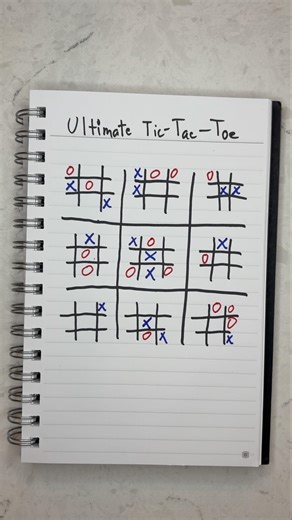 Ultimate Tic-Tac-Toe
O X O O O
X O X X X
X
X X O X
O X O
O O X O
X O O
X O
O X X